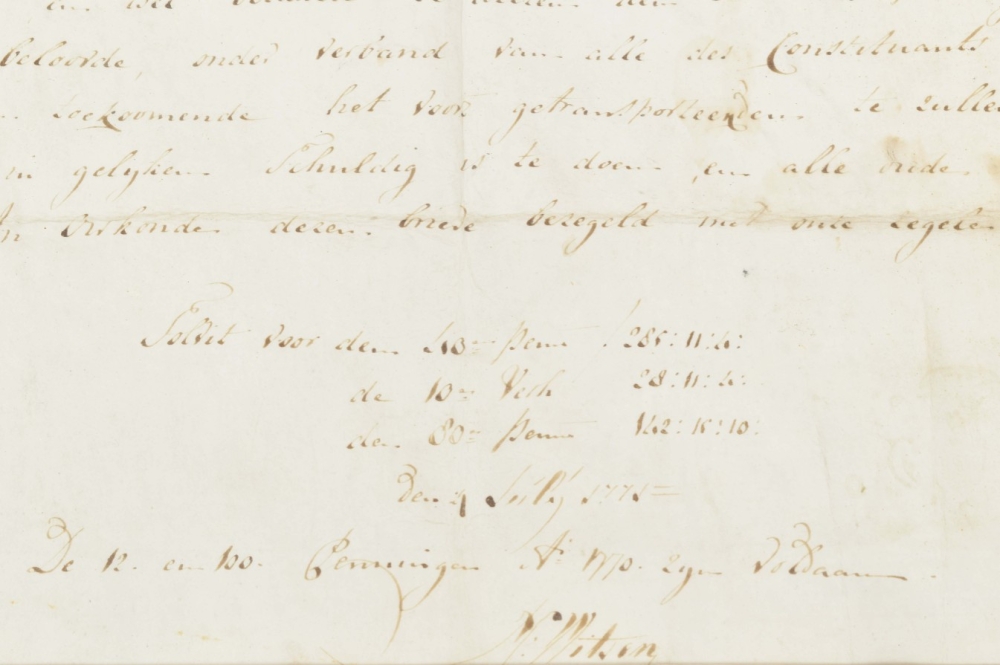 en wel
beloorde, onder verband van alle des Constituants
toekoomende het voorn getransporteerden te zullen
in gelyken Schuldig is te doen, en alle oude
In Oirkonde dezen brieve bezegeld met onze zegelen
Solvit voor den 40en penn f 285:11:4:
de 10en Verh 28:11:4:
den 80en penn 142:15:10:
Den July 1771
De 12. en 100. Penningen Ao 1770. zyn Voldaan.
Ns. Witsen